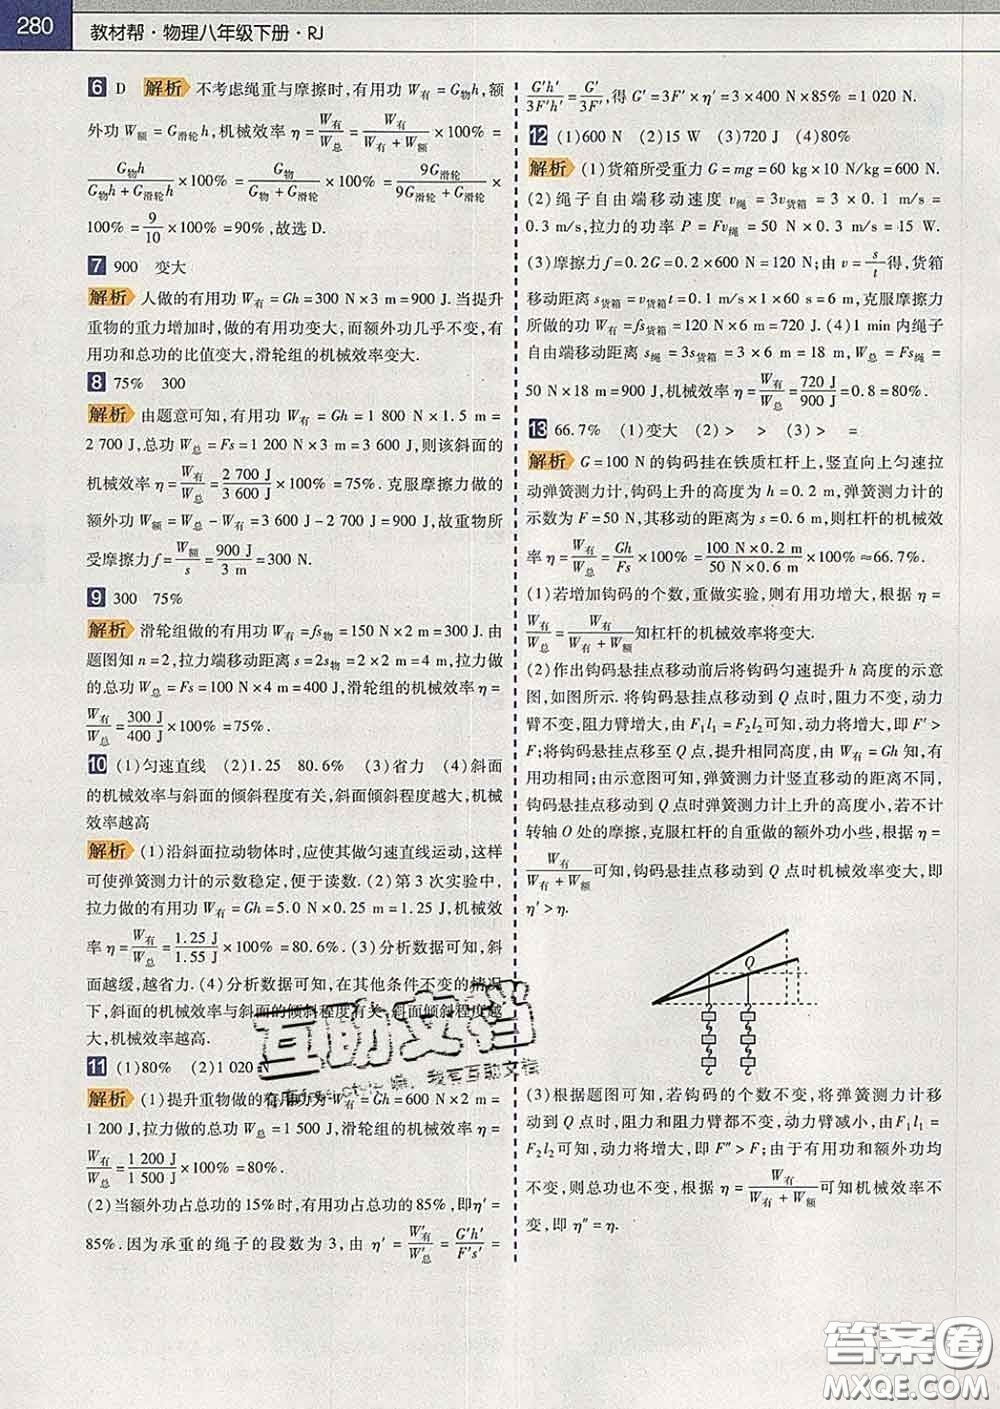 280 教材帮·物理八年级下册·RJ
6 D 解析 不考虑绳重与摩擦时,有用功W有=G物h,额
外功W额=G滑轮h,机械效率η=W有/W总=W有/(W有+W额)×100%=
G物h/(G物h+G滑轮h)×100%=G物/(G物+G滑轮)×100%=9G滑轮/(9G滑轮+G滑轮)×
100%=9/10×100%=90%,故选D.
7 900 变大
解析 人做的有用功W有=Gh=300 N×3 m=900 J.当提升
重物的重力增加时,做的有用功变大,而额外功几乎不变,有
用功和总功的比值变大,滑轮组的机械效率变大.
8 75% 300
解析 由题意可知,有用功W有=Gh=1 800 N×1.5 m=
2 700 J,总功W总=Fs=1 200 N×3 m=3 600 J,则该斜面的
机械效率η=W有/W总=2 700 J/3 600 J×100%=75%.克服摩擦力做的
额外功W额=W总-W有=3 600 J-2 700 J=900 J,故重物所
受摩擦力f=W额/s=900 J/3 m=300 N.
9 300 75%
解析 滑轮组做的有用功W有=fs物=150 N×2 m=300 J.由
题图知n=2,拉力端移动距离s=2s物=2×2 m=4 m,拉力做
的总功W总=Fs=100 N×4 m=400 J,滑轮组的机械效率η=
W有/W总=300 J/400 J×100%=75%.
10 (1)匀速直线 (2)1.25 80.6% (3)省力 (4)斜面
的机械效率与斜面的倾斜程度有关,斜面倾斜程度越大,机械
效率越高
解析 (1)沿斜面拉动物体时,应使其做匀速直线运动,这样
可使弹簧测力计的示数稳定,便于读数.(2)第3次实验中,
拉力做的有用功W有=Gh=5.0 N×0.25 m=1.25 J,机械效
率η=W有/W总=1.25 J/1.55 J×100%=80.6%.(3)分析数据可知,斜
面越缓,越省力.(4)分析数据可知,在其他条件不变的情况
下,斜面的机械效率与斜面的倾斜程度有关,斜面倾斜程度越
大,机械效率越高.
11 (1)80% (2)1 020 N
解析 (1)提升重物做的有用功为W有=Gh=600 N×2 m=
1 200 J,拉力做的总功W总=1 500 J,滑轮组的机械效率η=
W有/W总=1 200 J/1 500 J×100%=80%.
(2)当额外功占总功的15%时,有用功占总功的85%,即η′=
85%.因为承重的绳子的段数为3,由η′=W′有/W′总=G′h′/F′s′=
G′h′/3F′h′=G′/3F′,得G′=3F′×η′=3×400 N×85%=1 020 N.
12 (1)600 N (2)15 W (3)720 J (4)80%
解析 (1)货箱所受重力G=mg=60 kg×10 N/kg=600 N.
(2)绳子自由端移动速度v绳=3v货箱=3×0.1 m/s=
0.3 m/s,拉力的功率P=Fv绳=50 N×0.3 m/s=15 W.
(3)摩擦力f=0.2G=0.2×600 N=120 N;由v=s/t得,货箱
移动距离s货箱=v货箱t=0.1 m/s×1×60 s=6 m,克服摩擦力
所做的功W有=fs货箱=120 N×6 m=720 J.(4)1 min内绳子
自由端移动距离s绳=3s货箱=3×6 m=18 m,W总=Fs绳=
50 N×18 m=900 J,机械效率η=W有/W总=720 J/900 J=0.8=80%.
13 66.7% (1)变大 (2)> > (3)> =
解析 G=100 N的钩码挂在铁质杠杆上,竖直向上匀速拉
动弹簧测力计,钩码上升的高度为h=0.2 m,弹簧测力计的
示数为F=50 N,其移动的距离为s=0.6 m,则杠杆的机械效
率η=W有/W总=Gh/Fs×100%=100 N×0.2 m/50 N×0.6 m×100%≈66.7%.
(1)若增加钩码的个数,重做实验,则有用功增大,根据η=
W有/W总=W有/(W有+W额)知杠杆的机械效率将变大.
(2)作出钩码悬挂点移动前后将钩码匀速提升h高度的示意
图,如图所示.将钩码悬挂点移动到Q点时,阻力不变,动力
臂不变,阻力臂增大,由F1l1=F2l2可知,动力将增大,即F′>
F;将钩码悬挂点移至Q点,提升相同高度,由W有=Gh知,有
用功相同;由示意图可知,弹簧测力计竖直移动的距离不同,
钩码悬挂点移动到Q点时弹簧测力计上升的高度小,若不计
转轴O处的摩擦,克服杠杆的自重做的额外功小些,根据η=
W有/(W有+W额)可知,钩码悬挂点移动到Q点时机械效率变大,即
η′>η.
Q
(3)根据题图可知,若钩码的个数不变,将弹簧测力计移
动到Q点时,阻力和阻力臂都不变,动力臂减小,由F1l1=
F2l2可知,动力将增大,即F″>F;由于有用功和额外功均
不变,则总功也不变,根据η=W有/(W有+W额)可知机械效率不
变,即η″=η.
互助文档
答案圈
MXQE.COM